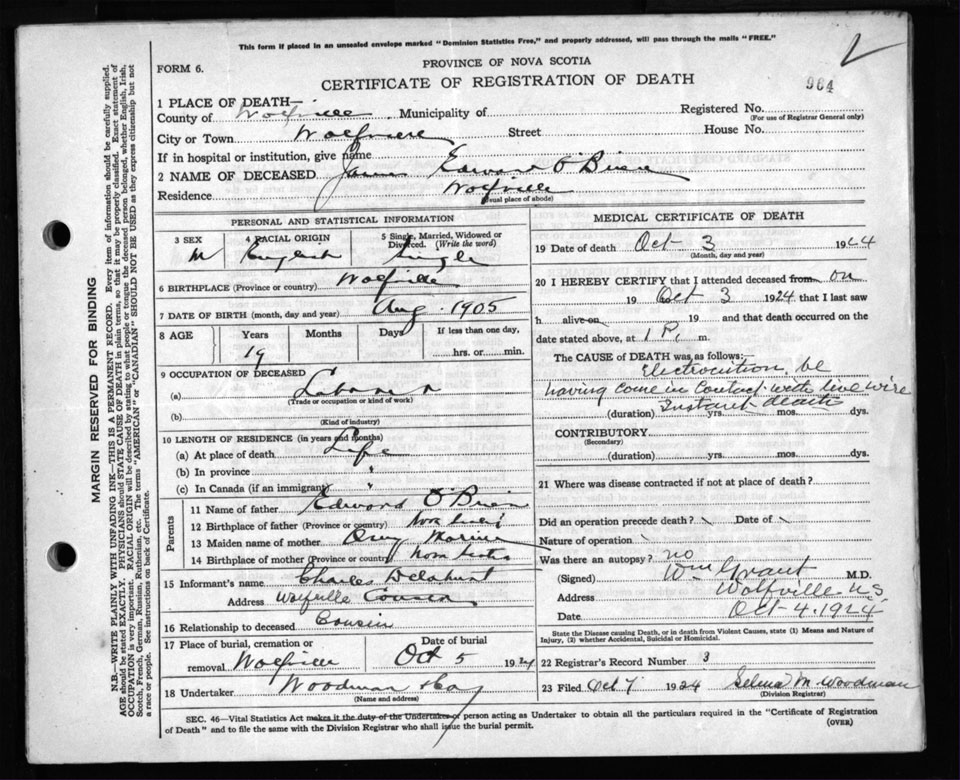 This form if placed in an unsealed envelope marked "Dominion Statistics Free," and properly addressed, will pass through the mails "FREE."
PROVINCE OF NOVA SCOTIA
FORM 6.
CERTIFICATE OF REGISTRATION OF DEATH
964
1 PLACE OF DEATH—
County of Wolfville Municipality of Registered No.
(For use of Registrar General only)
City or Town Wolfville Street House No.
If in hospital or institution, give name
2 NAME OF DECEASED James Edward O'Brien
Residence Wolfville
(Usual place of abode)
PERSONAL AND STATISTICAL INFORMATION
3 SEX 4 RACIAL ORIGIN 5 Single, Married, Widowed or Divorced. (Write the word)
M English Single
6 BIRTHPLACE (Province or country) Wolfville
7 DATE OF BIRTH (month, day and year) Aug. 1905
8 AGE Years Months Days If less than one day,
19 hrs. or min.
9 OCCUPATION OF DECEASED
(a) Laborer
(Trade or occupation or kind of work)
(b)
(Kind of industry)
10 LENGTH OF RESIDENCE (in years and months)
(a) At place of death Life
(b) In province "
(c) In Canada (if an immigrant) "
Parents
11 Name of father Edward O'Brien
12 Birthplace of father (Province or country) Nova Scotia
13 Maiden name of mother
14 Birthplace of mother (Province or country) Nova Scotia
15 Informant's name Charles Delahunt
Address Wolfville Cousin
16 Relationship to deceased Cousin
17 Place of burial, cremation or removal Wolfville Date of burial Oct 5 1924
18 Undertaker Woodman & Co
(Name and address)
MEDICAL CERTIFICATE OF DEATH
19 Date of death Oct 3 1924
(Month, day and year)
20 I HEREBY CERTIFY that I attended deceased from on
19 Oct 3 1924 that I last saw
h alive on 19 and that death occurred on the
date stated above, at 1 P. m.
The CAUSE OF DEATH was as follows:—
Electrocution, be
having come in contact with live wire
Instant death
(duration) yrs. mos. dys.
CONTRIBUTORY
(Secondary)
(duration) yrs. mos. dys.
21 Where was disease contracted if not at place of death?
Did an operation precede death? \ Date of \
Nature of operation \
Was there an autopsy? no
(Signed) Wm Grant M.D.
Address Wolfville N.S.
Date Oct-4.1924
State the Disease causing Death, or in death from Violent Causes, state (1) Means and Nature of Injury, (2) whether Accidental, Suicidal or Homicidal.
22 Registrar's Record Number 3
23 Filed Oct 7 1924 Selena M. Woodman
(Division Registrar)
SEC. 46—Vital Statistics Act makes it the duty of the Undertaker or person acting as Undertaker to obtain all the particulars required in the "Certificate of Registration
of Death" and to file the same with the Division Registrar who shall issue the burial permit.
(OVER)
MARGIN RESERVED FOR BINDING
N.B.—WRITE PLAINLY WITH UNFADING INK—THIS IS A PERMANENT RECORD. Every item of information should be carefully supplied.
AGE should be stated EXACTLY. PHYSICIANS should STATE CAUSE OF DEATH in plain terms, so that it may be properly classified. Exact statement of
OCCUPATION is very important. RACIAL ORIGIN will be described by stating to what people or tongue the deceased person belonged, whether English, Irish,
Scotch, French, German, Russian, Ruthenian, etc. The terms "AMERICAN" or "CANADIAN" SHOULD NOT BE USED as they express citizenship but not
a race or people. See instructions on back of Certificate.